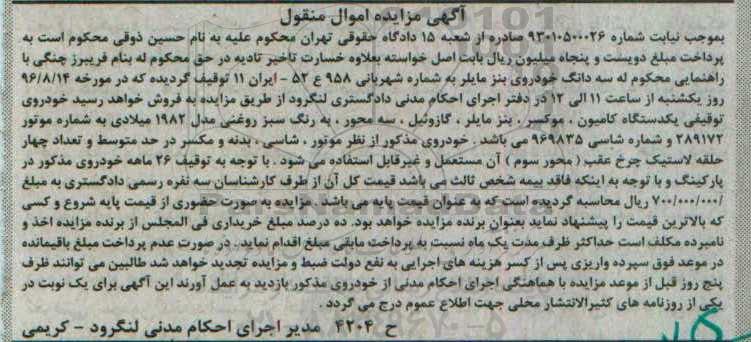 آگهی مزایده اموال منقول
بموجب نیابت شماره ۹۳۰۱۰۵۰۰۰۲۶ صادره از شعبه ۱۵ دادگاه حقوقی تهران محکوم علیه به نام حسین ذوقی محکوم است به
پرداخت مبلغ دویست و پنجاه میلیون ریال بابت اصل خواسته بعلاوه خسارت تاخیر تادیه در حق محکوم له بنام فریبرز چنگی با
راهنمایی محکوم له سه دانگ خودروی بنز مایلر به شماره شهربانی ۹۵۸ ع ۵۲ - ایران ۱۱ توقیف گردیده که در مورخه ۹۶/۸/۱۴
روز یکشنبه از ساعت ۱۱ الی ۱۲ در دفتر اجرای احکام مدنی دادگستری لنگرود از طریق مزایده به فروش خواهد رسید خودروی
توقیفی یکدستگاه کامیون ، موکسر ، بنز مایلر ، گازوئیل ، سه محور ، به رنگ سبز روغنی مدل ۱۹۸۲ میلادی به شماره موتور
۲۸۹۱۷۲ و شماره شاسی ۹۶۹۸۳۵ می باشد . خودروی مذکور از نظر موتور ، شاسی ، بدنه و مکسر در حد متوسط و تعداد چهار
حلقه لاستیک چرخ عقب ( محور سوم ) آن مستعمل و غیرقابل استفاده می شود . با توجه به توقیف ۲۶ ماهه خودروی مذکور در
پارکینگ و با توجه به اینکه فاقد بیمه شخص ثالث می باشد قیمت کل آن از طرف کارشناسان سه نفره رسمی دادگستری به مبلغ
۷۰۰/۰۰۰/۰۰۰/ ریال محاسبه گردیده است که به عنوان قیمت پایه می باشد . مزایده به صورت حضوری از قیمت پایه شروع و کسی
که بالاترین قیمت را پیشنهاد نماید بعنوان برنده مزایده خواهد بود. ده درصد مبلغ خریداری فی المجلس از برنده مزایده اخذ و
نامبرده مکلف است حداکثر ظرف مدت یک ماه نسبت به پرداخت مابقی مبلغ اقدام نماید. در صورت عدم پرداخت مبلغ باقیمانده
در موعد فوق سپرده واریزی پس از کسر هزینه های اجرایی به نفع دولت ضبط و مزایده تجدید خواهد شد طالبین می توانند ظرف
پنج روز قبل از موعد مزایده با هماهنگی اجرای احکام مدنی از خودروی مذکور بازدید به عمل آورند این آگهی برای یک نوبت در
یکی از روزنامه های کثیرالانتشار محلی جهت اطلاع عموم درج می گردد .
ح ۴۲۰۴ مدیر اجرای احکام مدنی لنگرود - کریمی